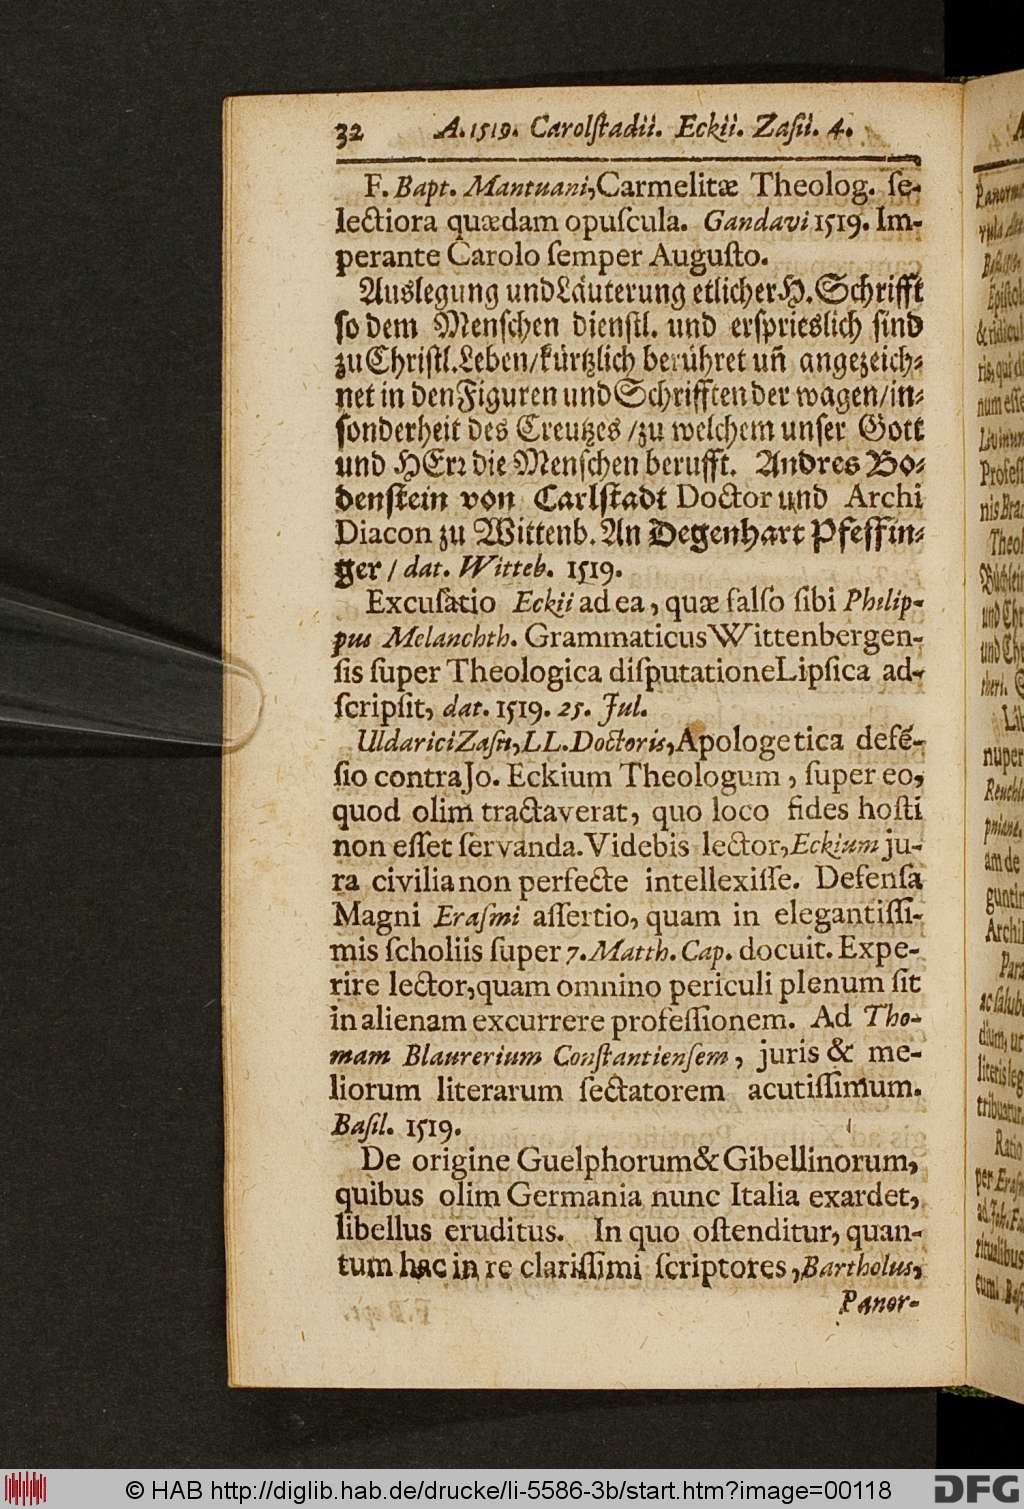 32 A. 1519. Carolſtadii. Eckii. Zaſii. 4.
F. Bapt. Mantuani, Carmelitæ Theolog. ſe-
lectiora quædam opuſcula. Gandavi 1519. Im-
perante Carolo ſemper Auguſto.
Auslegung und Läuterung etlicher H. Schrifft
ſo dem Menſchen dienſtl. und erſprieslich ſind
zu Chriſtl. Leben/ kürtzlich berühret uñ angezeich-
net in den Figuren und Schrifften der wagen/ in-
ſonderheit des Creutzes / zu welchem unſer Gott
und HErꝛ die Menſchen berufft. Andres Bo-
denſtein von Carlſtadt Doctor und Archi
Diacon zu Wittenb. An Degenhart Pfeffin-
ger / dat. Witteb. 1519.
Excuſatio Eckii ad ea, quæ falſo ſibi Philip-
pus Melanchth. Grammaticus Wittenbergen-
ſis ſuper Theologica diſputatione Lipſica ad-
ſcripſit, dat. 1519. 25. Jul.
Uldarici Zaſii, LL. Doctoris, Apologetica defẽ-
ſio contra Jo. Eckium Theologum, ſuper eo,
quod olim tractaverat, quo loco fides hoſti
non eſſet ſervanda. Videbis lector, Eckium ju-
ra civilia non perfecte intellexiſſe. Defenſa
Magni Eraſmi aſſertio, quam in elegantiſſi-
mis ſcholiis ſuper 7. Matth. Cap. docuit. Expe-
rire lector, quam omnino periculi plenum ſit
in alienam excurrere profeſſionem. Ad Tho-
mam Blaurerium Conſtantienſem, juris & me-
liorum literarum ſectatorem acutiſſimum.
Baſil. 1519.
De origine Guelphorum & Gibellinorum,
quibus olim Germania nunc Italia exardet,
libellus eruditus. In quo oſtenditur, quan-
tum hac in re clariſſimi ſcriptores, Bartholus,
Panor-
© HAB http://diglib.hab.de/drucke/li-5586-3b/start.htm?image=00118
DFG